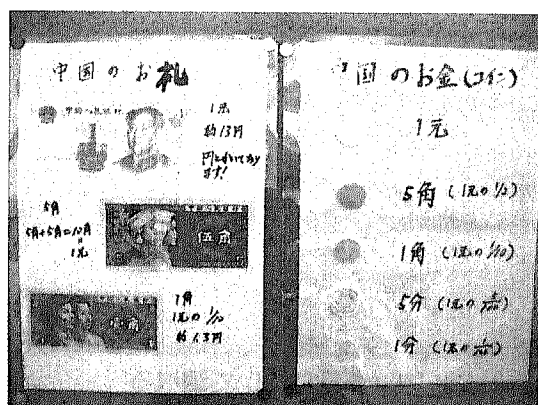 中国のお札
1元
約13円
円とかいてあります!
5角
5角+5角=10角
1元
伍角
1角
1元の1/10
約1.3円
国のお金(コイン)
1元
5角(1元の5/10)
1角(1元の1/10)
5分(1元の5/100)
1分(1元の1/100)